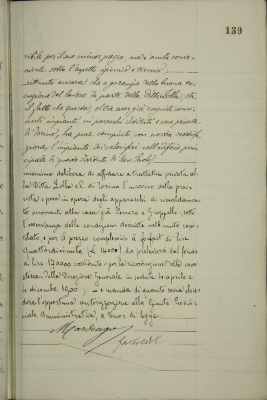 139
sibile per il suo minor prezzo, ma è anche conve-
niente sotto l'aspetto igienico e tecnico;
ritenuto ancora che a garanzia della buona ese-
cuzione del lavoro da parte della Ditta Lolla, sta
il fatto che questa, oltre aver già eseguito
impianti in parecchi Istituti e case private
di Torino, ha pure compiuto con nostra soddisfa-
zione l'impianto dei caloriferi nell'edificio prin-
cipale di questo Istituto di San Paolo;
unanime delibera di affidare a trattativa privata al-
la Ditta Lolla e C. di Torino l'incarico della provvi-
sta e posa in opera degli apparecchi di riscaldamen-
to occorrenti alla casa già, sotto
l'osservanza delle condizioni
e per il prezzo complessivo a forfait di lire
Quattordicimila (L. 14000) da prelevarsi dal fondo
di lire 170000 costituito per la ricostruzione della casa
stessa dalla Direzione Generale in sedute 10 aprile e
dicembre 1900; e manda di quanto sovra chie-
dere l'opportuna autorizzazione alla Giunta Provin-
ciale Amministrativa, a tenor di legge.
Martengo